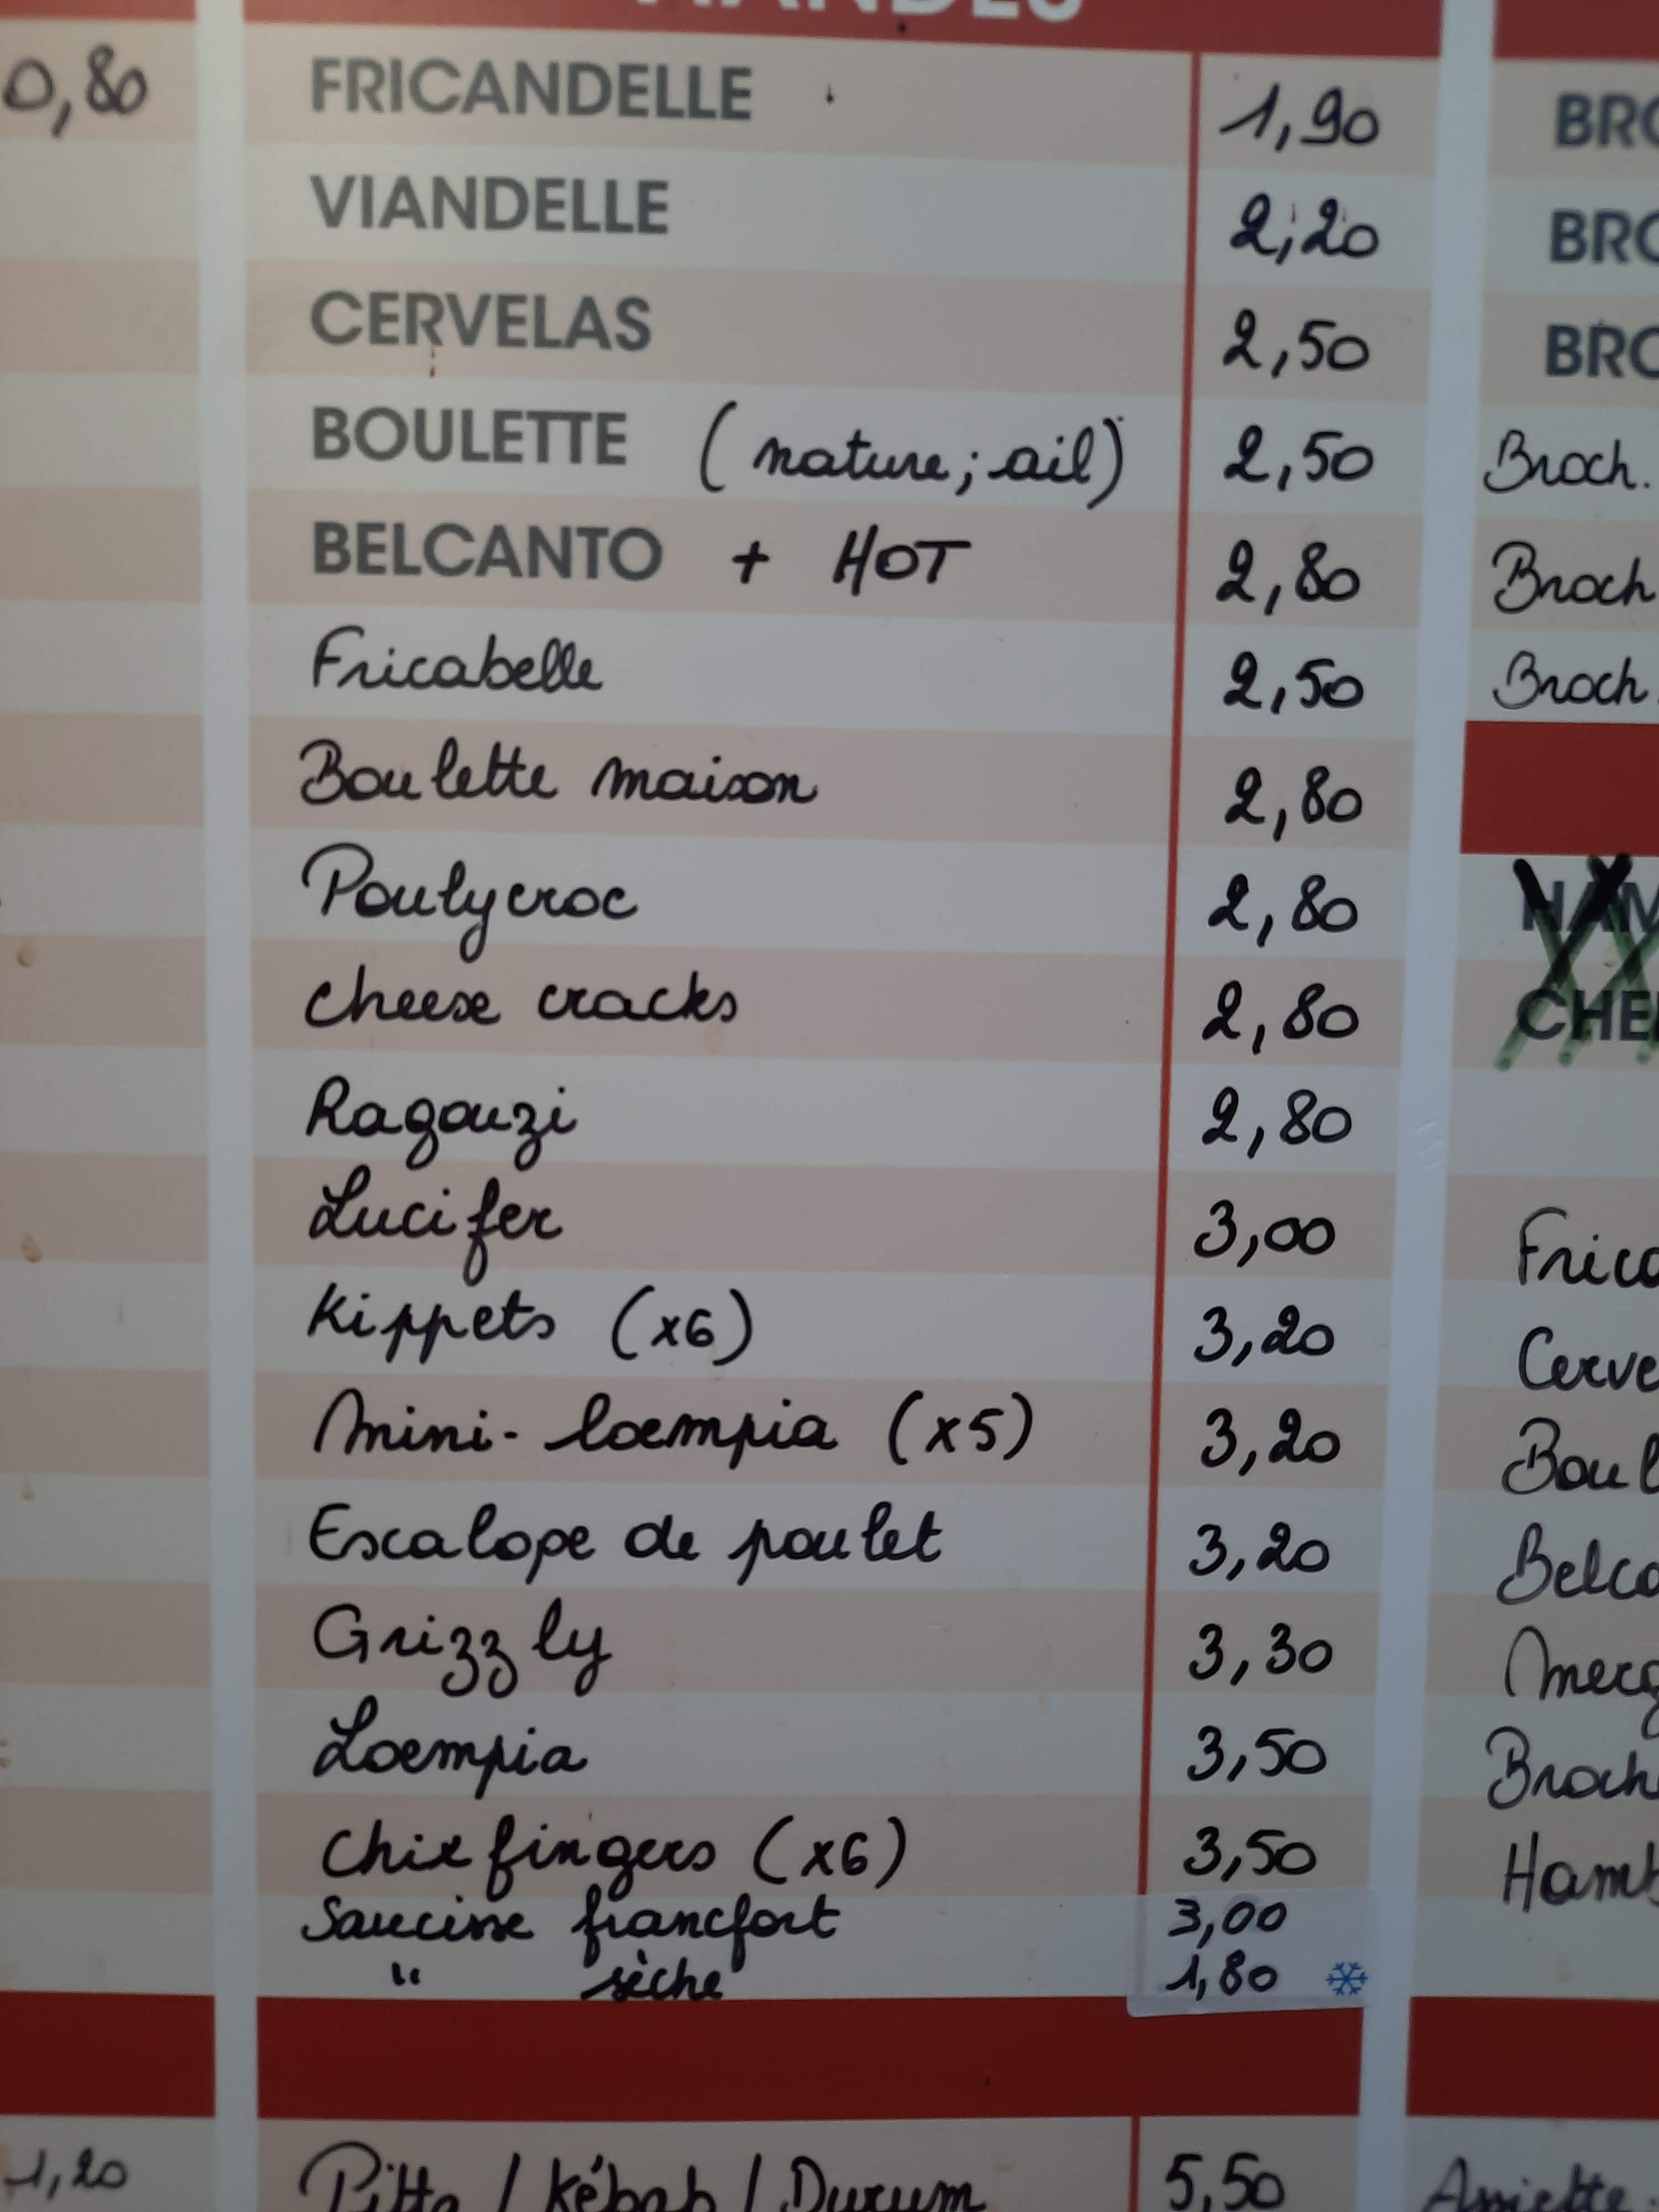 VIANDES
0,80
FRICANDELLE 1,90
VIANDELLE 2,20
CERVELAS 2,50
BOULETTE (nature; ail) 2,50
BELCANTO + HOT 2,80
Fricabelle 2,50
Boulette maison 2,80
Poulycroc 2,80
Cheese cracks 2,80
Ragouzi 2,80
Lucifer 3,00
Kippets (x6) 3,20
Mini-loempia (x5) 3,20
Escalope de poulet 3,20
Grizzly 3,30
Loempia 3,50
Chix fingers (x6) 3,50
Saucisse francfort 3,00
" sèche 1,80
1,20
Pitta / Kébab / Durum 5,50
BRO
BRO
BRO
Broch.
Broch
Broch.
HAM
CHE
Frica
Cerve
Boul
Belca
Merg
Broch
Hamb
Assiette